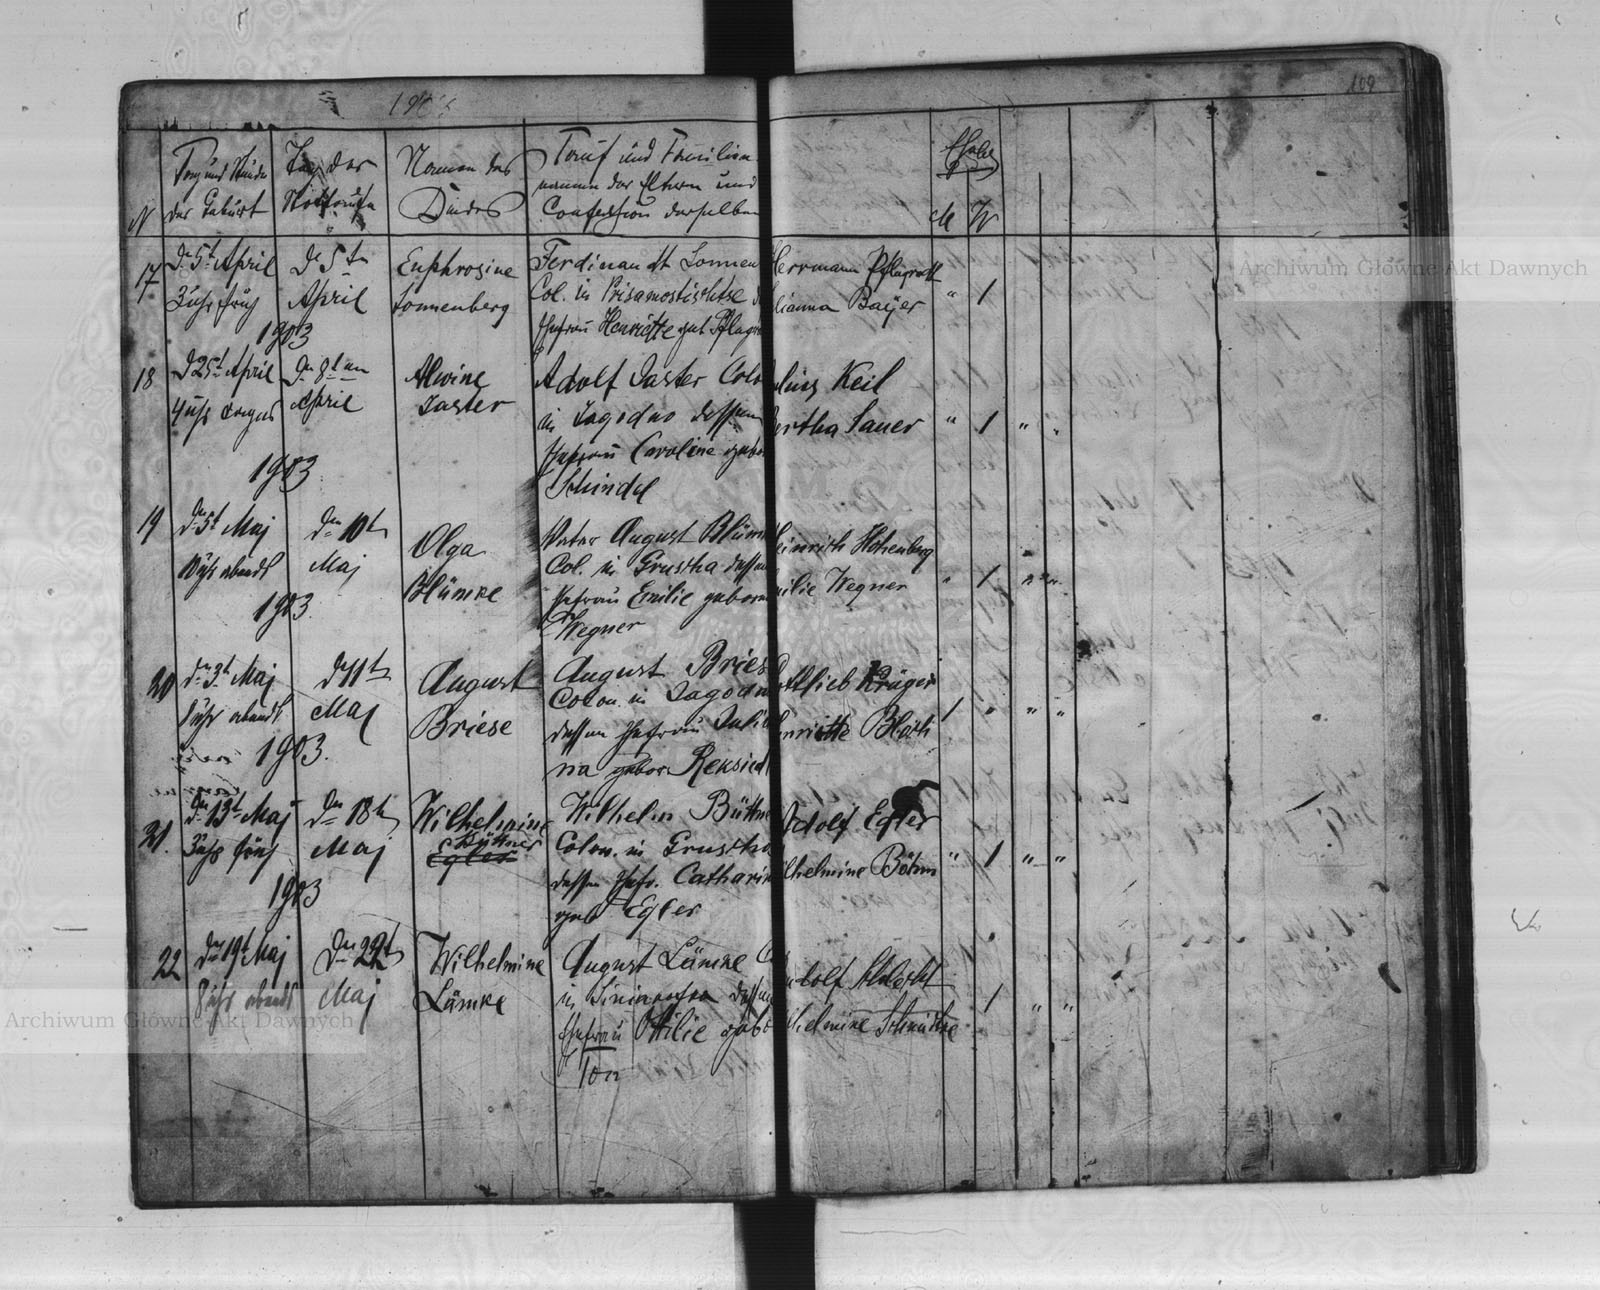 109
Tag und Stunde
der Geburt
Tag der
Nottaufe
Namen des
Kindes
Tauf und Familien
namen der Eltern und
Confession derselben
Ehelig
N
M W
17
D 5t April
3 Uhr früh
1903
D 5 tn
April
Euphrosine
Sonnenberg
Ferdinandt Sonnen
Col. in
Ehefrau Henriette geb
Herrmann Pflugradt
lianna Baÿer
" 1
18
D 25t April
4 Uhr
1903
April
Alwine
Jaster
Adolf Jaster Colo
in Jagodno dessen
Ehefrau Caroline gebor
Schindel
lius Keil
ertha Sauer
" 1 " "
19
dn 5t Maj
abends
1903.
dn 10t
Maj
Olga
Blümke
Vater August Blüm
Col. in Gruscha dessen
Ehefrau Emilie geborn
Wegner
einrich Hohenberg
milie Wegner
" 1 " "
20
dn 3t Maj
Uhr abends
1903.
d 11t
Maj
August
Briese
August Bries
Colon. in Jagodn
dessen Ehefrau Julia
na gebor
ottlieb Krüger
enriette
1 " " "
21.
dn 13t Maj
3 Uhr früh
1903
dn 18t
Maj
Wilhelmine
Büttner
Egler
Wilhelm Büttne
Colon. in Gruscha
dessen Ehefr. Catharin
geb Egler
Adolf Egler
ilhelmine Böhm
" 1 " "
22
dn 19t Maj
8 Uhr abends
Dn 22t
Maj
Wilhelmine
Lämke
August Lämke Col
in dessen
Ehefrau Ottilie gebo
Ton
udolf
lhelmine
1 " "
Archiwum Główne Akt Dawnych
Archiwum Główne Akt Dawnych